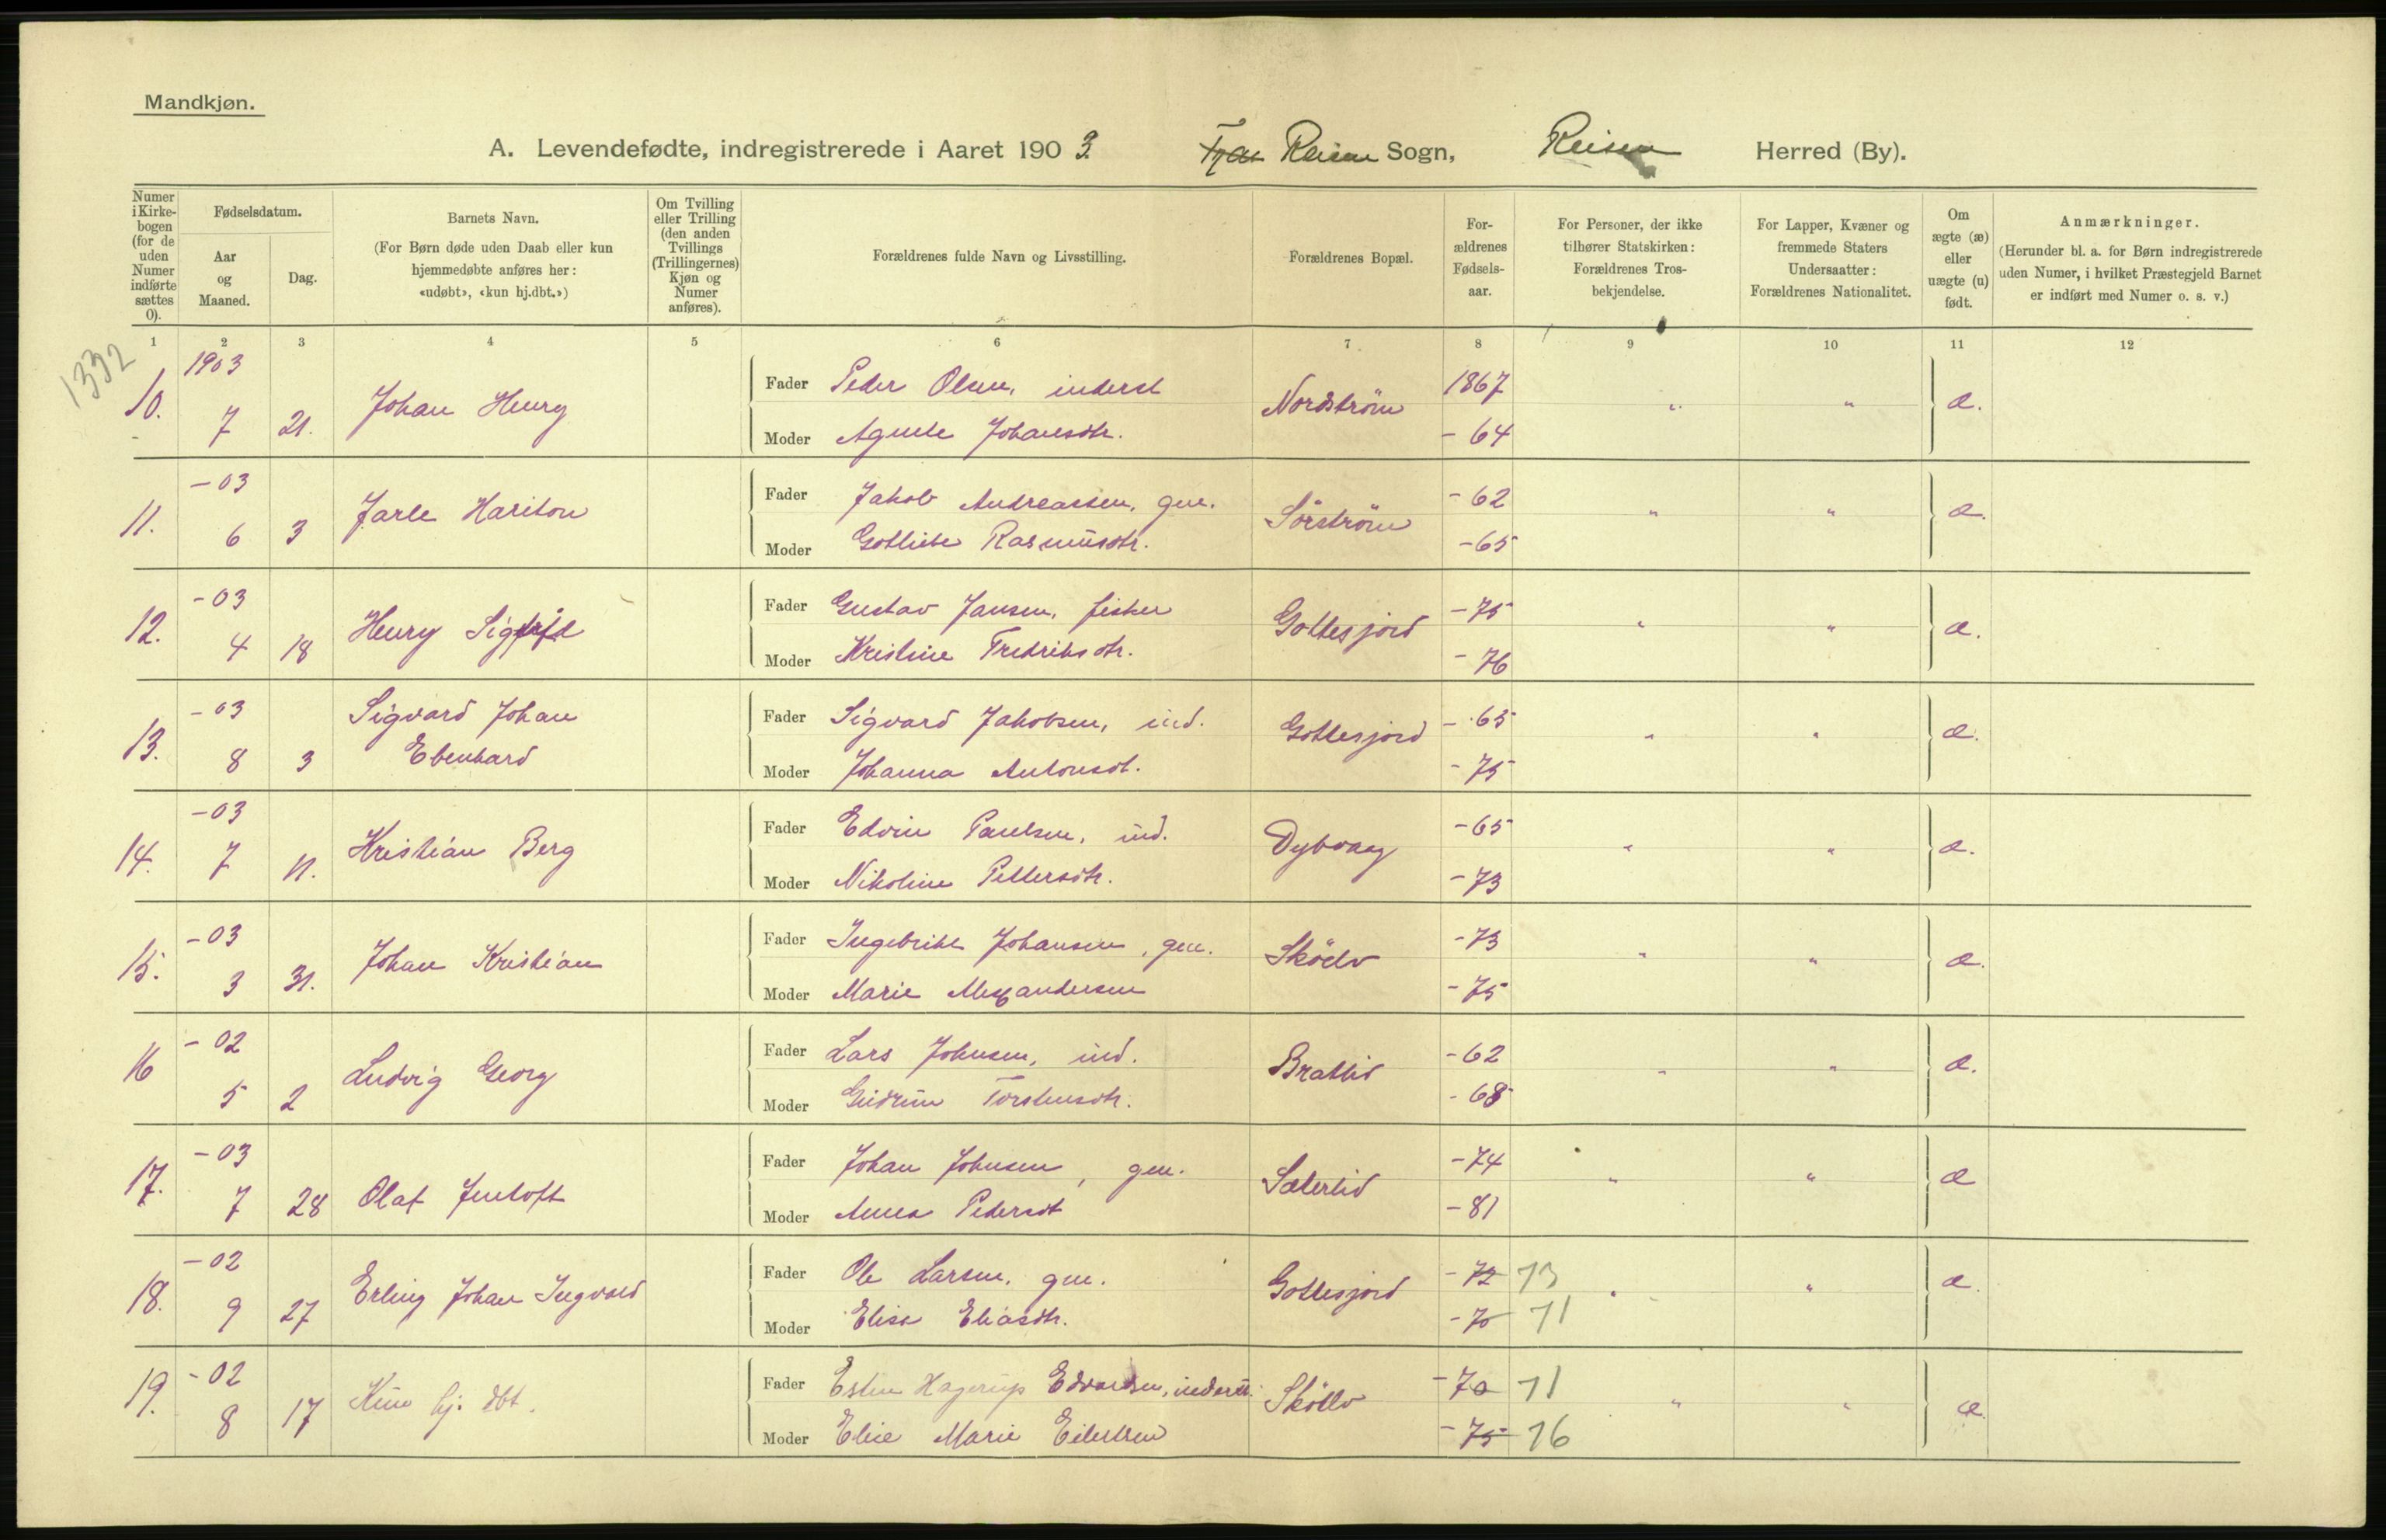 Mandkjøn.
A. Levendefødte, indregistrerede i Aaret 1903. Reisen Sogn, Reisen Herred (By).
Numer i Kirkebogen (for de uden Numer indførte sættes 0).
Fødselsdatum.
Aar og Maaned.
Dag.
Barnets Navn.
(For Børn døde uden Daab eller kun hjemmedøbte anføres her: «udøbt», «kun hj.dbt.»)
Om Tvilling eller Trilling (den anden Tvillings (Trillingernes) Kjøn og Numer anføres).
Forældrenes fulde Navn og Livsstilling.
Forældrenes Bopæl.
Forældrenes Fødselsaar.
For Personer, der ikke tilhører Statskirken: Forældrenes Trosbekjendelse.
For Lapper, Kvæner og fremmede Staters Undersaatter: Forældrenes Nationalitet.
Om ægte (æ) eller uægte (u) født.
Anmærkninger.
(Herunder bl. a. for Børn indregistrerede uden Numer, i hvilket Præstegjeld Barnet er indført med Numer o. s. v.)
1 2 3 4 5 6 7 8 9 10 11 12
1332
10. 1903 7 21. Johan Henry
Fader Peder Olsen, inderst Nordström 1867 " " æ.
Moder Agnete Johansdtr. - 64
11. - 03 6 3 Jarle Hariton
Fader Jakob Andreassen, gm. Sörström - 62 " " æ.
Moder Gotliebe Rasmusdtr. - 65
12. - 03 4 18 Henry
Fader Gustav Jansen, fisker Gottesjord - 75 " " æ.
Moder Kristine Fredriksdtr. - 76
13. - 03 8 3 Sigvard Johan Ebenhard
Fader Sigvard Jakobsen, ind. Gottesjord - 65 " " æ.
Moder Johanna Antonsdt. - 75
14. - 03 7 11. Kristian Berg
Fader Edvin Paulsen, ind. Dybvaag - 65 " " æ.
Moder Nikoline Pettersdtr. - 73
15. - 03 3 31. Johan Kristian
Fader Ingebrikt Johansen, gm. - 73 " " æ.
Moder Marie Alexandersen - 75
16 - 02 5 2 Ludvig Georg
Fader Lars Johnsen, ind. Brattlid - 62 " " æ.
Moder Gudrun Torstensdtr. - 68
17. - 03 7 28 Olaf Jentoft
Fader Johan Johnsen, gm. Sæterlid - 74 " " æ
Moder Anna Pedersdt - 81
18. - 02 9 27 Erling Johan Ingvald
Fader Ole Larsen, gm. Gottesjord - 72 73 " " æ.
Moder Elise Eliasdtr. - 70 71
19. - 02 8 17 Kun hj. dbt.
Fader Hagerup Edvardsen, inderst. - 70 71 " " æ.
Moder Elise Marie Eilertsen - 75 76